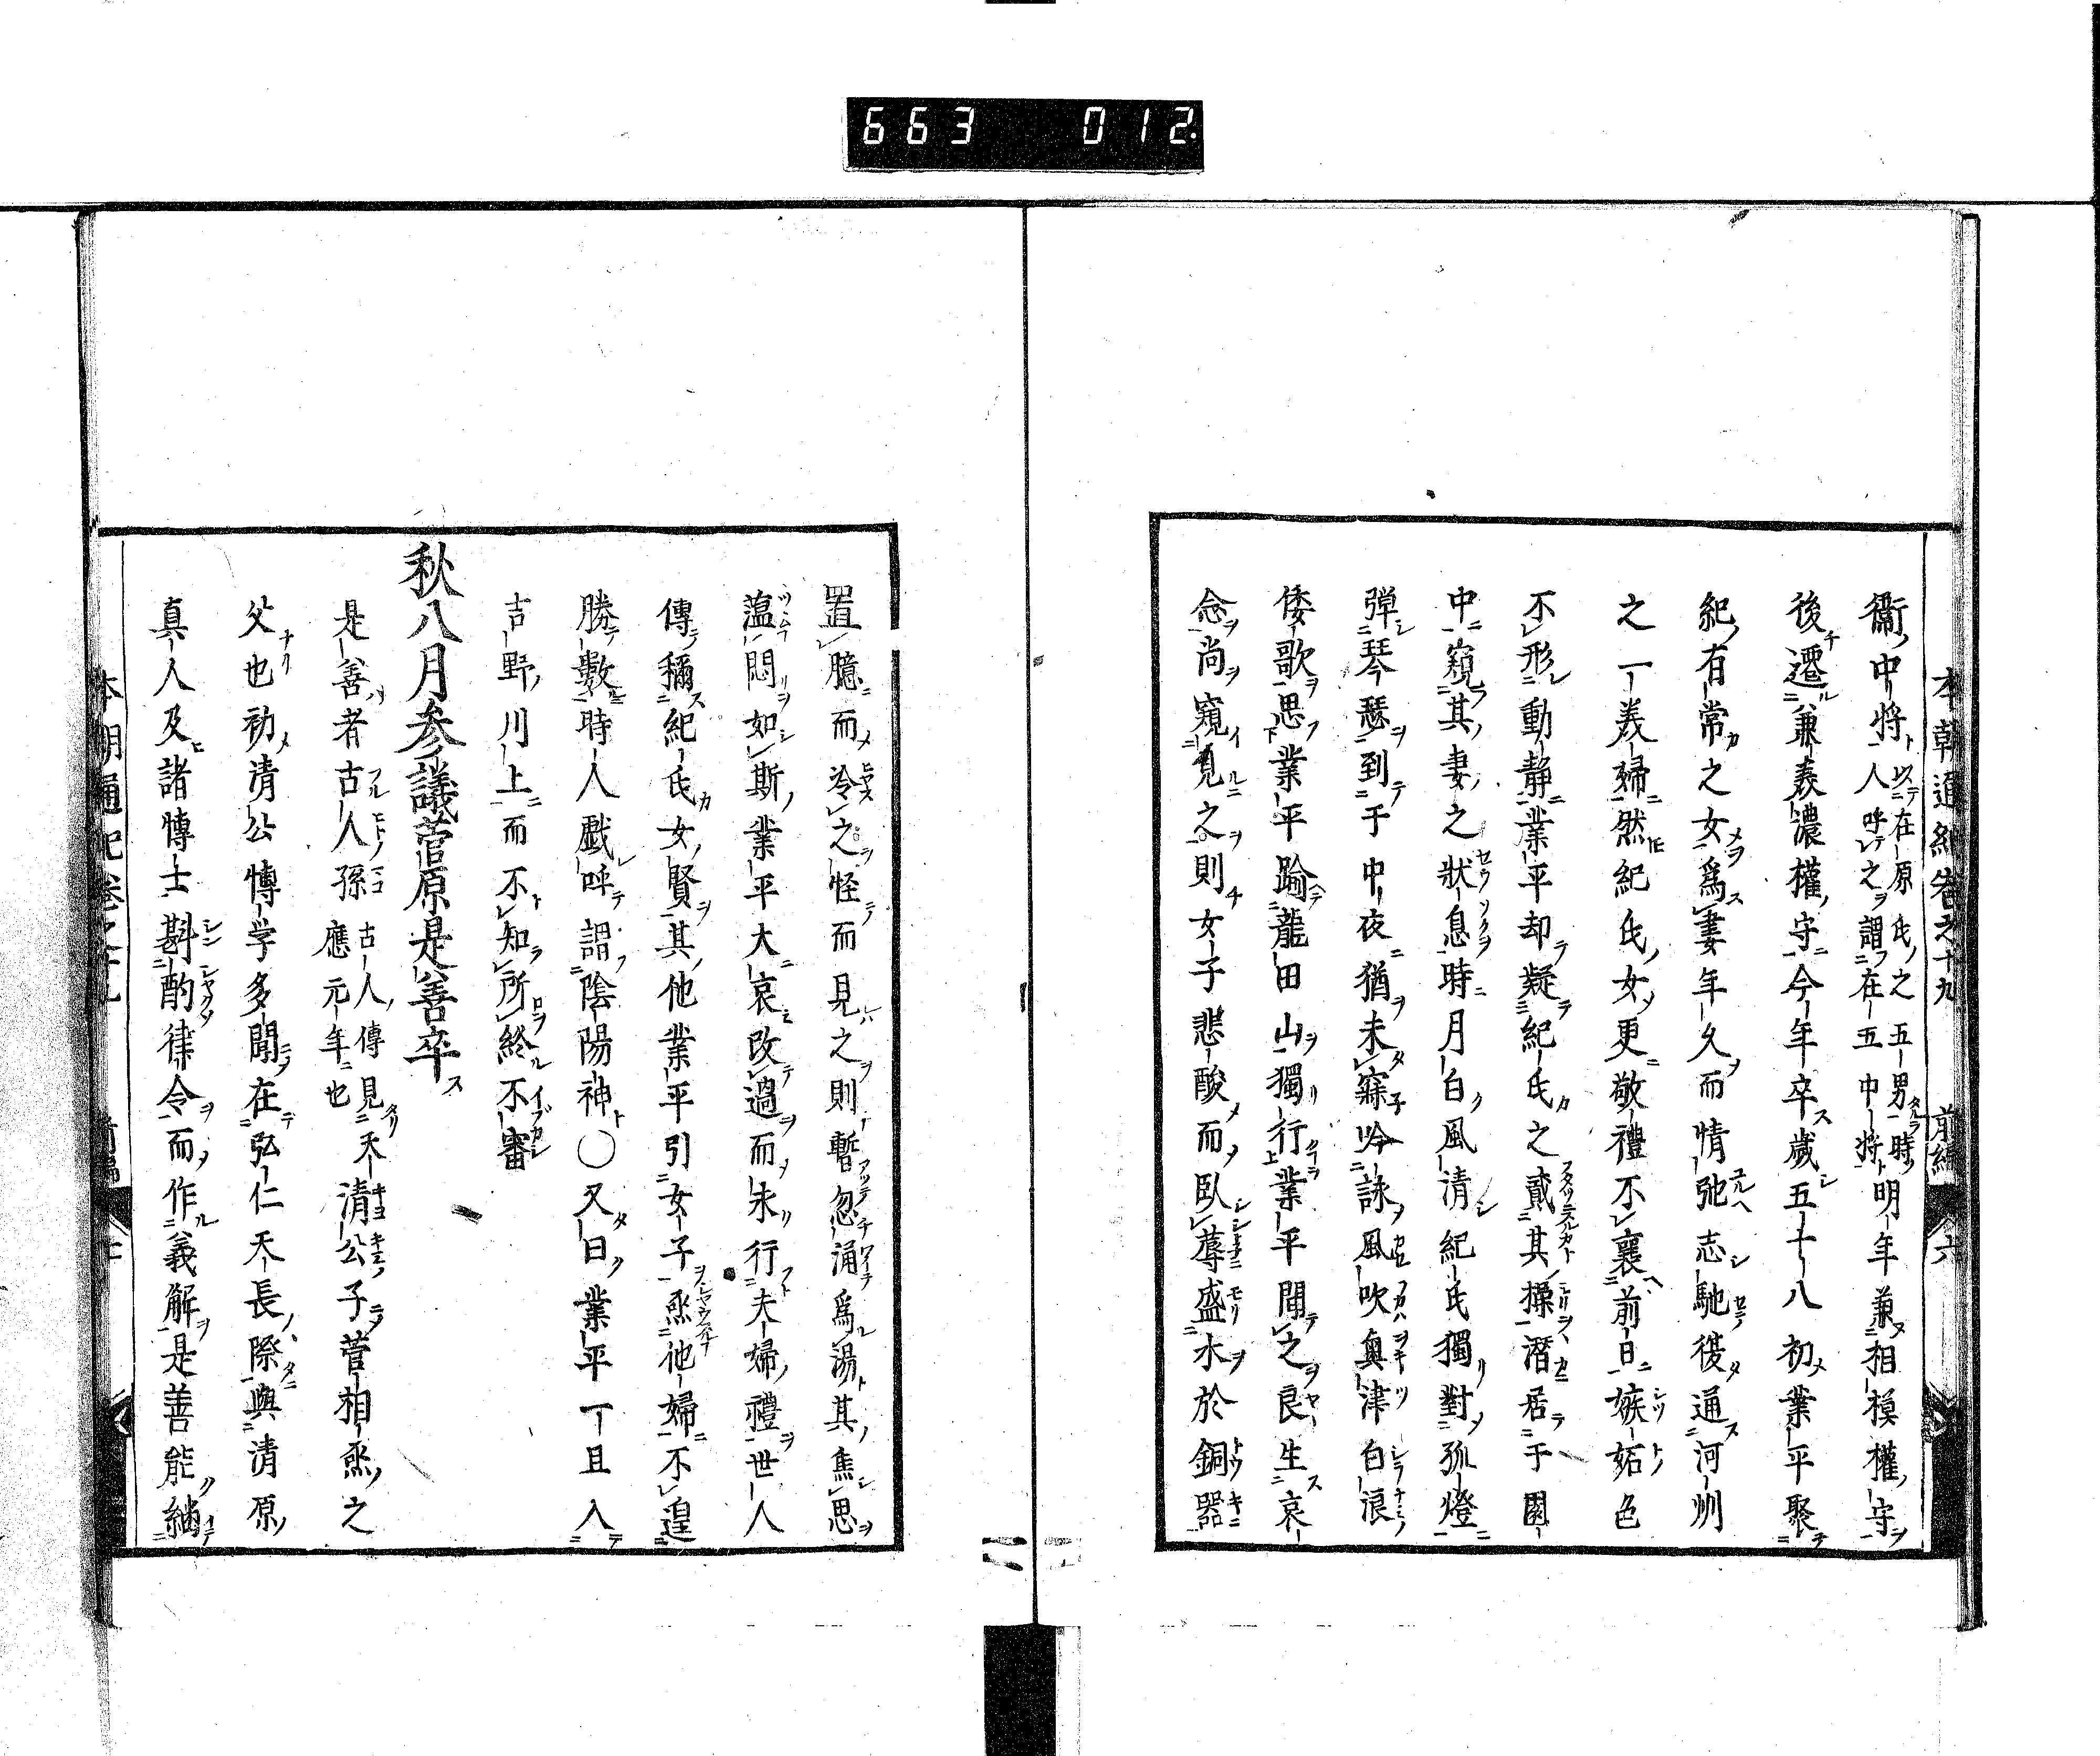 663 012.
本朝通紀卷之十九 前編 六
衞中將人呼之謂在五中將以在原氏之五男時明年兼相模權守
後遷兼美濃權守今年卒歲五十八初業平娶
紀有常之女爲妻年久而情弛志馳復通河州
之一美婦然紀氏女更敬禮不襄前日嫉妬色
不形動靜業平却疑紀氏之貳其操潛居于園
中窺其妻之狀息時月白風清紀氏獨對孤燈
弾琴瑟到于中夜猶未寐吟詠風吹奥津白浪
倭歌思業平踰龍田山獨行業平聞之良生哀
念尚窺覓之則女子悲酸而臥蓐盛水於銅器
置臆而冷之怪而見之則暫忽涌爲湯其焦思
薀悶如斯業平大哀改過而未行夫婦禮世人
傳稱紀氏女賢其他業平引女子烝他婦不遑
勝數時人戯呼謂陰陽神〇又曰業平一旦入
吉野川上而不知所終不審
秋八月參議菅原是善卒
是善者古人孫古人傳見天應元年也清公子菅相烝之
父也初清公博学多聞在弘仁天長際與清原
真人及諸博士斟酌律令而作義解是善能紬